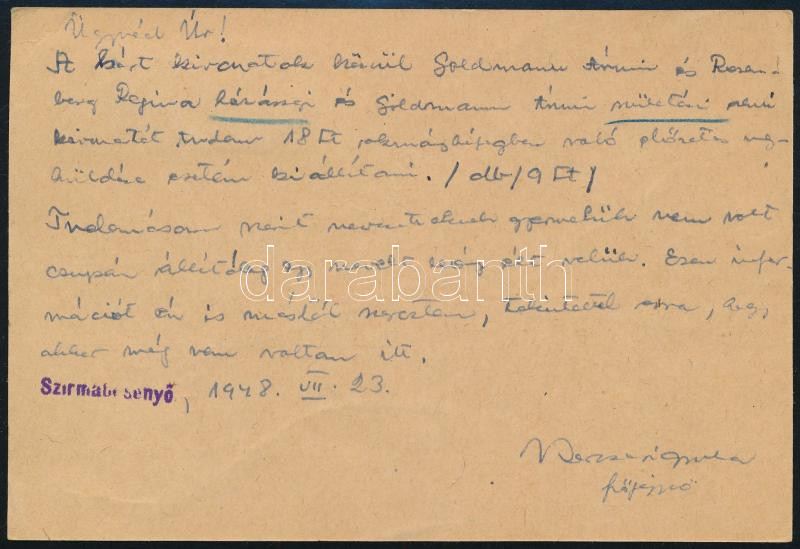 Ügyvéd Úr!
A kért kivonatok közül Goldmann Ármin és Rosen-
berg Regina házassági és Goldmann Ármin születési
kivonatát tudom 18 Ft okmánybélyegben való előzetes meg-
küldése esetén kiállítani. /db/9 Ft/
Tudomásom szerint nevezetteknek gyermekük nem volt
csupán állítólag egy nevelt leány élt velük. Ezen infor-
mációt én is mástól szereztem, tekintettel arra, hogy
akkor még nem voltam itt.
Szirmabesenyő, 1948. VII. 23.
főjegyző
darabanth